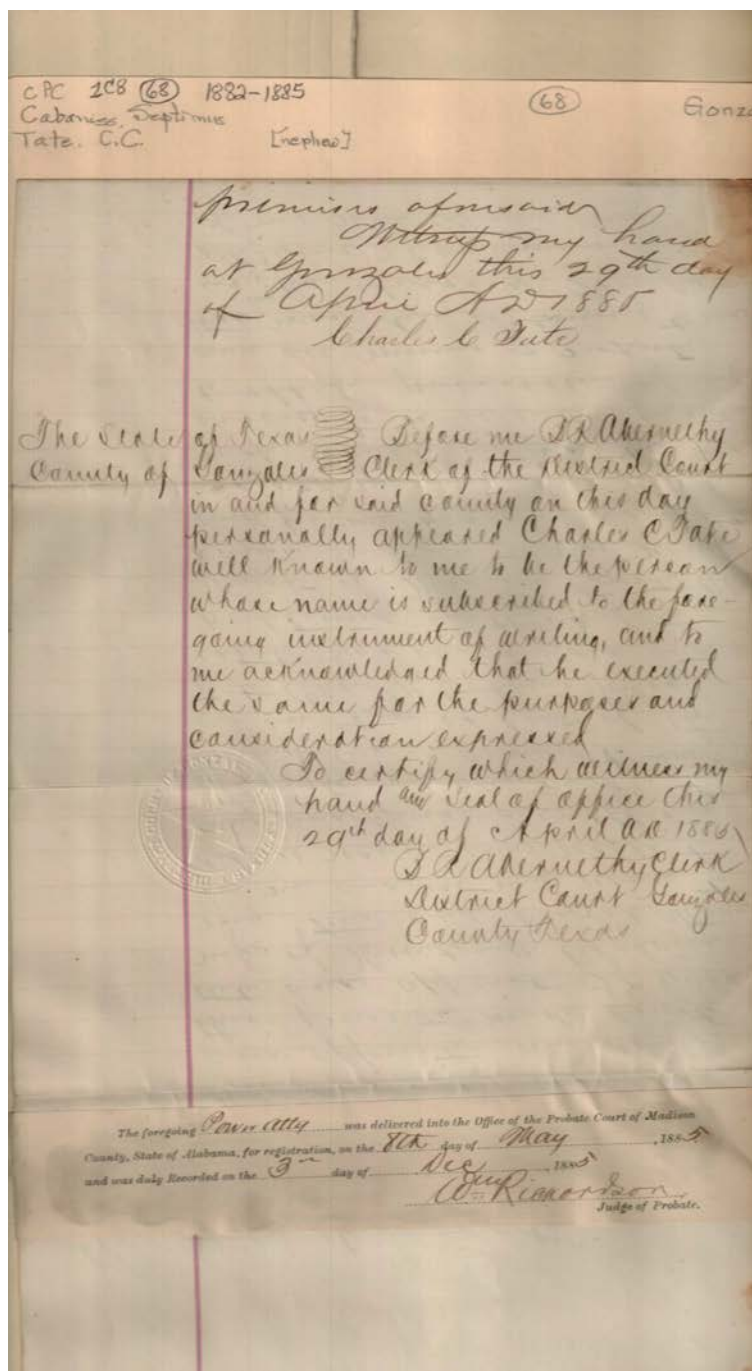 CPC 1C8 (68) 1882-1885 (68) Gonza
Cabaniss, Septimus
Tate. C.C. [nephew]
premises aforesaid
Witness my hand
at Gonzales this 29th day
of April AD 1885
Charles C. Tate
The State of Texas Before me D R Abernethy
County of Gonzales Clerk of the District Court
in and for said county on this day
personally appeared Charles C Tate
well known to me to be the person
whose name is subscribed to the fore-
going instrument of writing, and to
me acknowledged that he executed
the same for the purposes and
consideration expressed
To certify which witness my
hand and seal of office this
29th day of April AD 1885
D R Abernethy Clerk
District Court Gonzales
County Texas
The foregoing Power Atty was delivered into the Office of the Probate Court of Madison
County, State of Alabama, for registration, on the 8th day of May, 1885
and was duly Recorded on the 3rd day of Dec, 1885
Wm Richardson
Judge of Probate.